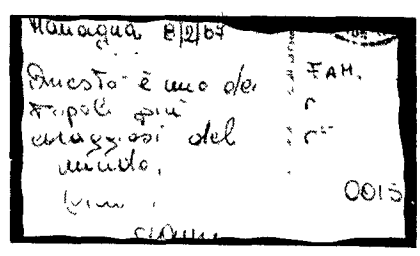 Managua 8/2/87
Questo è uno dei
popoli più
coraggiosi del
mondo.
FAM.
r
r
0015